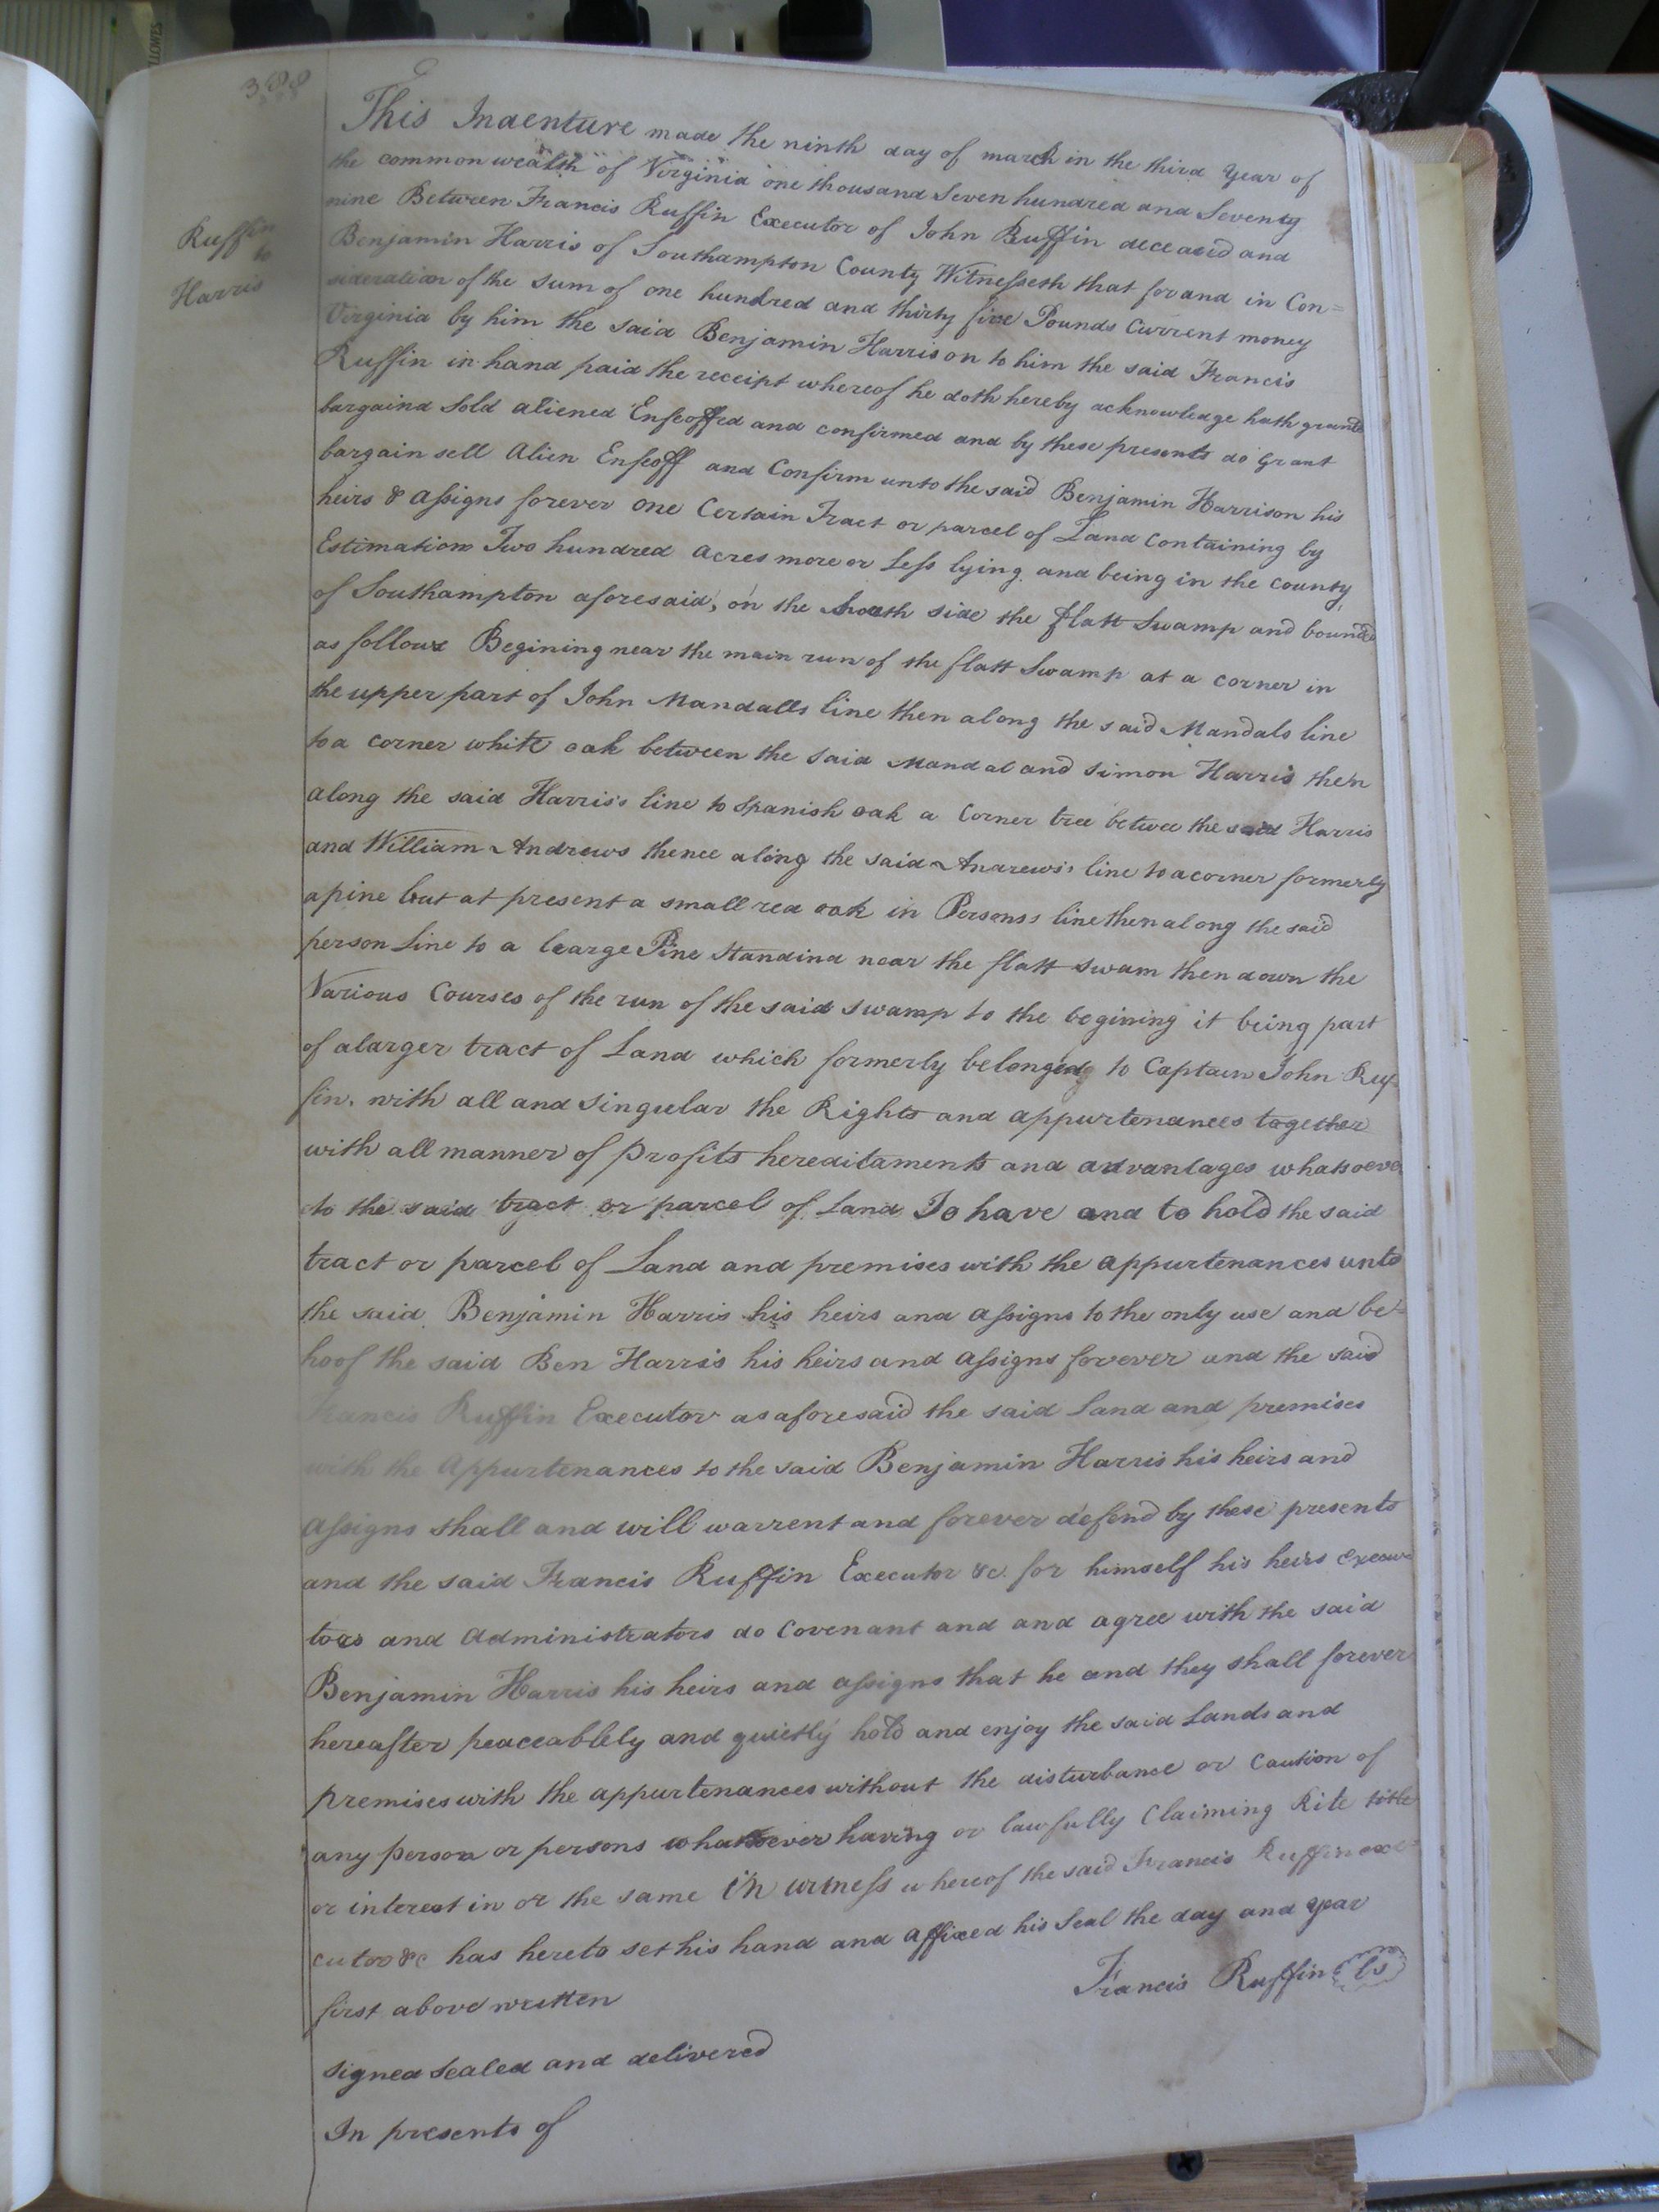 388
Ruffin
to
Harris
This Indenture made the ninth day of march in the third Year of
the common wealth of Virginia one thousand Seven hundred and Seventy
nine Between Francis Ruffin Executor of John Ruffin deceasid and
Benjamin Harris of Southampton County Witnesseth that for and in Con=
sideration of the Sum of one hundred and thirty five Pounds Current money
Virginia by him the said Benjamin Harrison to him the said Francis
Ruffin in hand paid the receipt whereof he doth hereby acknowledge hath grante
bargaind Sold aliened Enfeoffed and confirmed and by these presents do Grant
bargain sell Alien Enfeoff and Confirm unto the said Benjamin Harrison his
heirs & assigns forever one Certain Tract or parcel of Land Containing by
Estimation Two hundred acres more or Less lying and being in the County
of Southampton aforesaid, on the South side the flatt Swamp and bounded
as follows Begining near the main run of the flatt Swamp at a corner in
the upper part of John Mandalls line then along the said Mandals line
to a corner white oak between the said Mandal and Simon Harris then
along the said Harris's line to Spanish oak a Corner tree betwee the said Harris
and William Andrews thence along the said Andrews's line to a corner formerly
a pine but at present a small red oak in Persons's line then along the said
person Line to a Cearge Pine Standind near the flatt swam then down the
Various Courses of the run of the said swamp to the begining it being part
of a larger tract of Land which formerly belonging to Captain John Ruf
fin. with all and Singular the Rights and appurtenances together
with all manner of Profits hereditaments and advantages whatsoever
to the said tract or parcel of Land To have and to hold the said
tract or parcel of Land and premises with the appurtenances unto
the said Benjamin Harris his heirs and assigns to the only use and be=
hoof the said Ben Harris his heirs and assigns forever and the said
Francis Ruffin Executor as aforesaid the said Land and premises
with the Appurtenances to the said Benjamin Harris his heirs and
assigns shall and will warrent and forever defend by these presents
and the said Francis Ruffin Executor &c. for himself his heirs Execu
tors and administrators do Covenant and and agree with the said
Benjamin Harris his heirs and assigns that he and they shall forever
hereafter peaceablely and quietly hold and enjoy the said Lands and
premises with the appurtenances without the disturbance or Caution of
any person or persons whatsoever having or lawfully Claiming Rite title
or interest in or the same In witness whereof the said Francis Ruffin exe=
cutor &c has hereto set his hand and affixed his Seal the day and year
first above written
Francis Ruffin Ls
signed sealed and delivered
In presents of